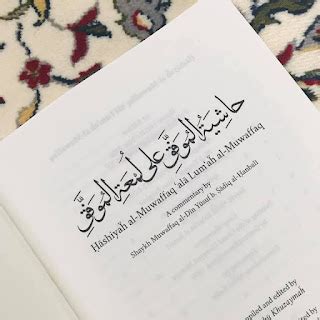 حاشية الموفق على لمعة الموفق
Ḥāshiyah al-Muwaffaq ʿalā Lumʿah al-Muwaffaq
A commentary by
Shaykh Muwaffaq al-Dīn Yūsuf b. Ṣādiq al-Ḥanbalī
mpiled and edited by
Khuzaymah